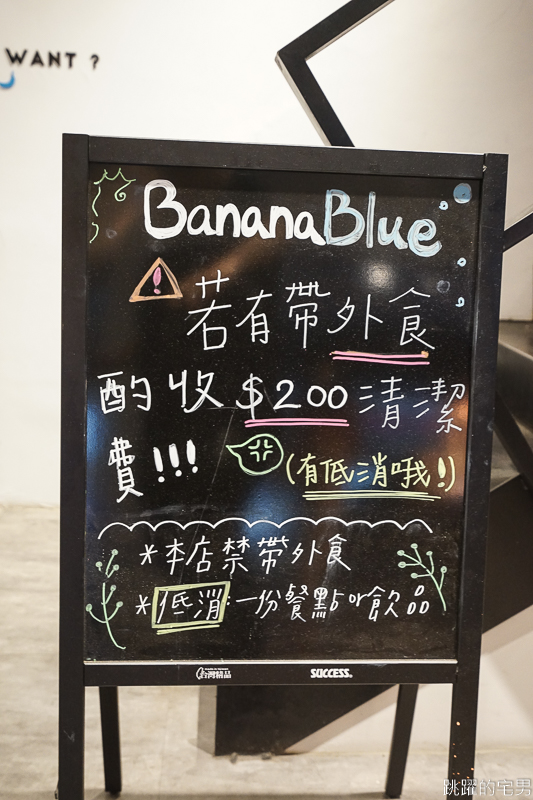 WANT ?
BananaBlue
若有帶外食
酌收 $200 清潔
費!!!
(有低消哦!)
*本店禁帶外食
*低消:一份餐點or飲品
made in taiwan
台灣精品
SUCCESS
跳躍的宅男